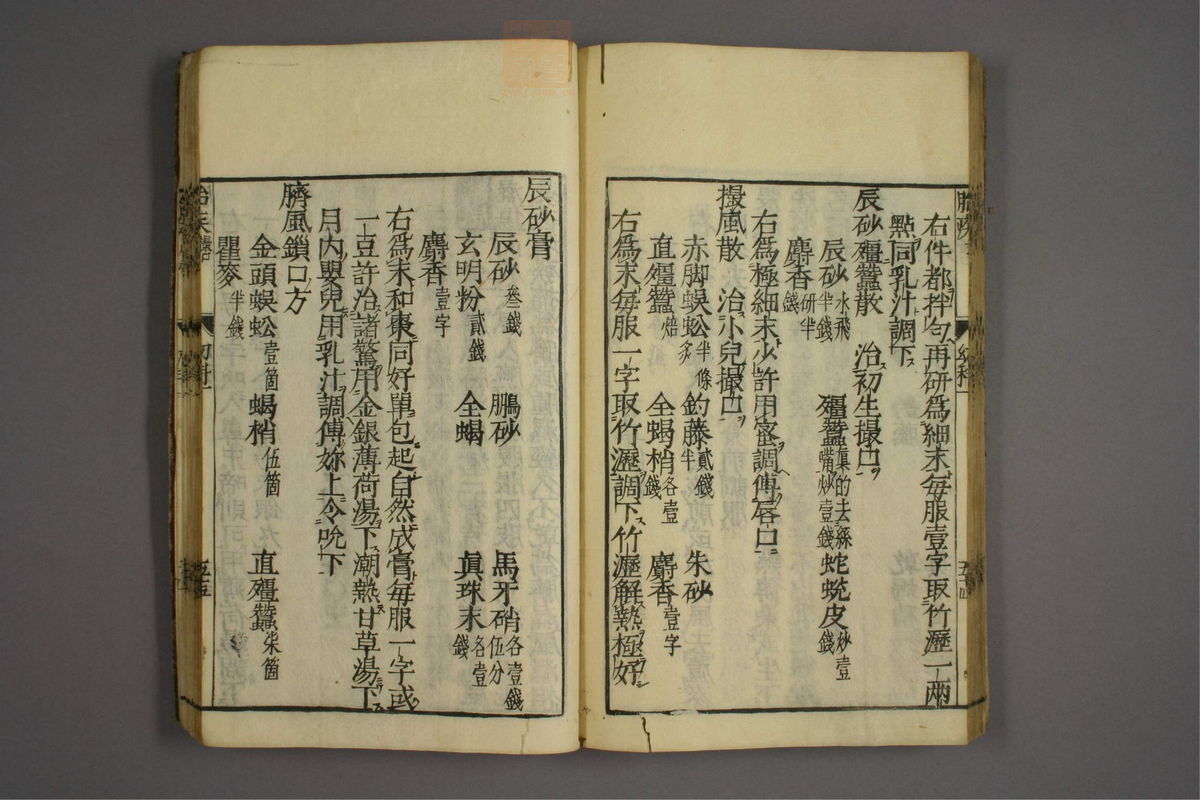 右件都拌匀再研爲細末每服壹字取竹瀝一兩
點同乳汁調下
辰砂殭蠶散 治初生撮口
辰砂水飛半錢 殭蠶集的去絲嘴炒壹錢 蛇蛻皮炒壹錢
麝香研半錢
右爲極細末少許用蜜調傅唇口
撮風散 治小兒撮口
赤脚蜈蚣半條炙 釣藤貳錢半 朱砂
直殭蠶焙 全蝎梢各壹錢 麝香壹字
右爲末每服一字取竹瀝調下竹瀝解熱極好
辰砂膏
辰砂叁錢 鵬砂 馬牙硝各壹錢伍分
玄明粉貳錢 全蝎 眞珠末各壹錢
麝香壹字
右爲末和棗同好單包起自然成膏每服一字或
一豆許治諸驚用金銀薄荷湯下潮熱甘草湯下
月內嬰兒用乳汁調傅妳上令吮下
臍風鎖口方
金頭蜈蚣壹箇 蝎梢伍箇 直殭蠶柒箇
瞿麥半錢